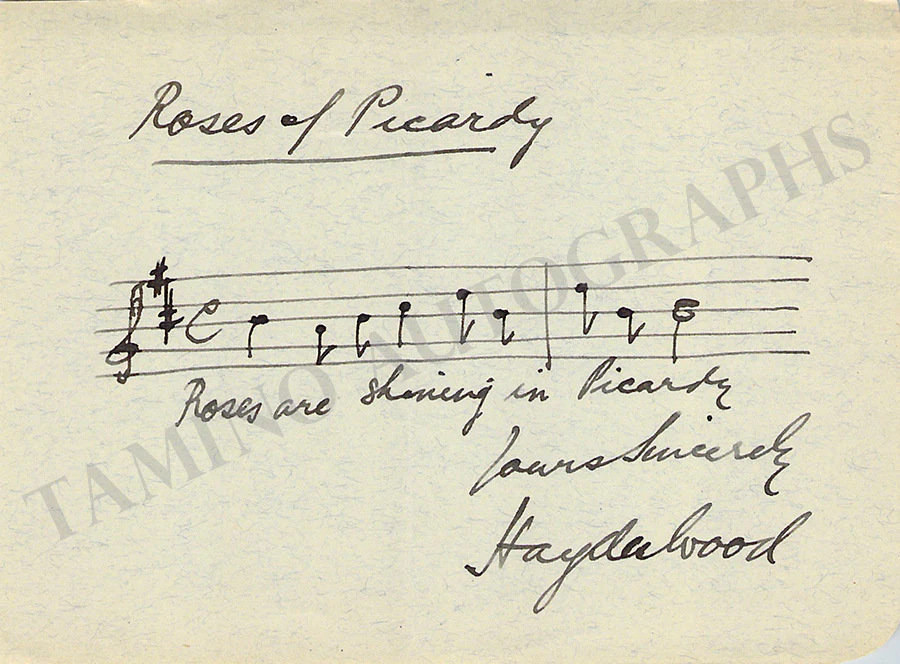 Roses of Picardy
Roses are shining in Picardy
Yours Sincerely
Haydn Wood
TAMINO AUTOGRAPHS